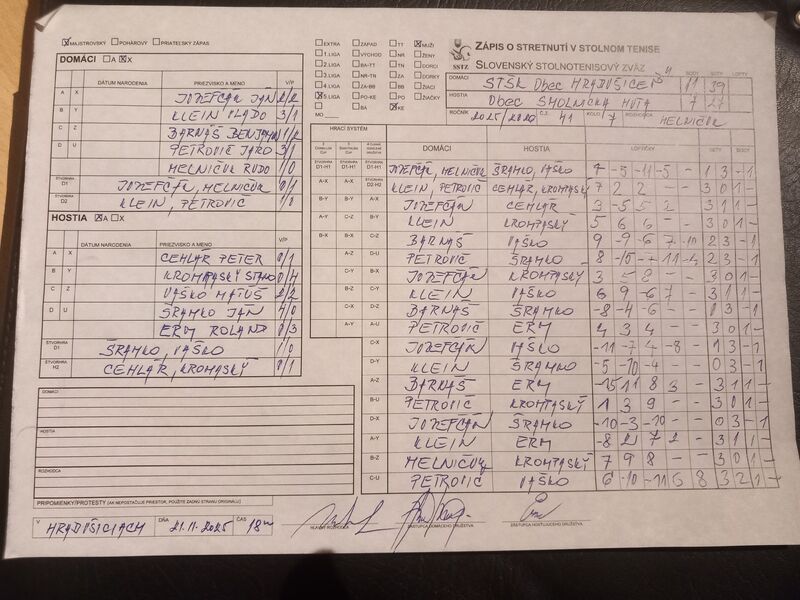 MAJSTROVSKÝ POHÁROVÝ PRIATEĽSKÝ ZÁPAS
DOMÁCI A X
DÁTUM NARODENIA PRIEZVISKO A MENO V/P
A X JOZEFČÁK JÁN 2/2
B Y KLEIN VLADO 3/1
C Z BARNÁŠ BENJAMÍN 1/2
D U PETROVIČ JARO 3/1
MELNIČUK RUDO 1/0
ŠTVORHRA D1 JOZEFČÁK, MELNIČUK 0/1
ŠTVORHRA D2 KLEIN, PETROVIČ 1/0
HOSTIA A X
DÁTUM NARODENIA PRIEZVISKO A MENO V/P
A X CEHLÁR PETER 0/1
B Y KROMPASKÝ STANO 0/4
C Z VAŠKO MATÚŠ 2/2
D U ŠRAMKO JÁN 4/0
ERM ROLAND 0/3
ŠTVORHRA D1 ŠRAMKO, VAŠKO 1/0
ŠTVORHRA H2 CEHLÁR, KROMPASKÝ 0/1
DOMÁCI
HOSTIA
ROZHODCA
PRIPOMIENKY/PROTESTY (AK NEPOSTAČUJE PRIESTOR, POUŽITE ZADNÚ STRANU ORIGINÁLU)
V HRADUŠICIACH DŇA 21.11.2025 ČAS 18
HLAVNÝ ROZHODCA ZÁSTUPCA DOMÁCEHO DRUŽSTVA ZÁSTUPCA HOSŤUJÚCEHO DRUŽSTVA
EXTRA ZÁPAD TT MUŽI
1. LIGA VÝCHOD NR ŽENY
2. LIGA BA-TT TN DORCI
3. LIGA NR-TN ZA DORKY
4. LIGA ZA-BB BB ŽIACI
5. LIGA PO-KE PO ŽIAČKY
MO BA KE
SSTZ
ZÁPIS O STRETNUTÍ V STOLNOM TENISE
SLOVENSKÝ STOLNOTENISOVÝ ZVÄZ
BODY SETY LOPTY
DOMÁCI STŠK Obec HRADUŠICE "B" 11 39
HOSTIA Obec SMOLNÍCKA HUTA 7 27
ROČNÍK 2025/2026 Č.Z. 41 KOLO 7 ROZHODCA MELNIČUK
HRACÍ SYSTÉM DOMÁCI HOSTIA LOPTIČKY SETY BODY
ŠTVORHRA D1-H1 JOZEFČÁK, MELNIČUK ŠRAMKO, VAŠKO 7 -5 -11 -5 - 1 3 - 1
A-X KLEIN, PETROVIČ CEHLÁR, KROMPASKÝ 7 2 2 - - 3 0 1 -
B-Y JOZEFČÁK CEHLÁR 3 -5 5 2 3 1 1 -
A-Y C-Z B-Y KLEIN KROMPASKÝ 5 6 6 - - 3 0 1 -
B-X B-X C-Z BARNÁŠ VAŠKO 9 -9 -6 7 -10 2 3 - 1
D-U PETROVIČ ŠRAMKO 2 3 - 1
C-Y B-X JOZEFČÁK KROMPASKÝ 3 5 8 - - 3 0 1 -
C-Y KLEIN VAŠKO 6 9 -6 7 - 3 1 1 -
C-X D-Z BARNÁŠ ŠRAMKO -8 -4 -6 - - 0 3 - 1
A-Y A-U PETROVIČ ERM 4 3 4 - - 3 0 1 -
C-X JOZEFČÁK VAŠKO -11 -7 4 -8 - 1 3 - 1
D-Y KLEIN ŠRAMKO -5 -10 -4 - - 0 3 - 1
A-Z BARNÁŠ ERM -15 11 8 3 - 3 1 1 -
B-U PETROVIČ KROMPASKÝ 1 3 9 - - 3 0 1 -
D-X JOZEFČÁK ŠRAMKO -10 -3 -10 - - 0 3 - 1
A-Y KLEIN ERM -8 2 7 2 - 3 1 1 -
B-Z MELNIČUK KROMPASKÝ 7 9 8 - - 3 0 1 -
C-U PETROVIČ VAŠKO 6 -10 -11 6 8 3 2 1 -